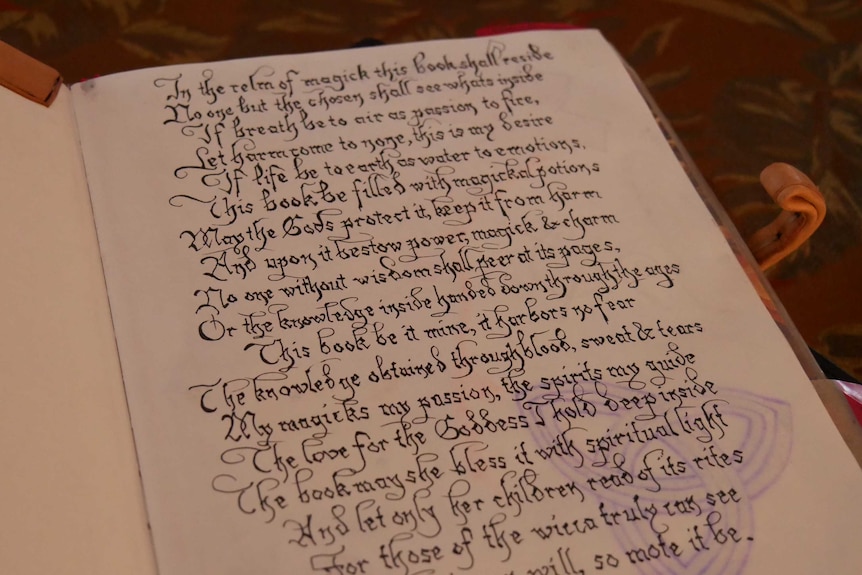 In the relm of magick this book shall reside
No one but the chosen shall see whats inside
If breath be to air as passion to fire,
Let harm come to none, this is my desire
If life be to earth as water to emotions,
This book be filled with magickal potions
May the Gods protect it, keep it from harm
And upon it bestow power, magick & charm
No one without wisdom shall peer at its pages,
Or the knowledge inside handed down through the ages
This book be it mine, it harbors no fear
The knowledge obtained through blood, sweat & tears
My magicks my passion, the spirits my guide
The love for the Goddess I hold deep inside
The book may she bless it with spiritual light
And let only her children read of its rites
For those of the wicca truly can see
will, so mote it be.